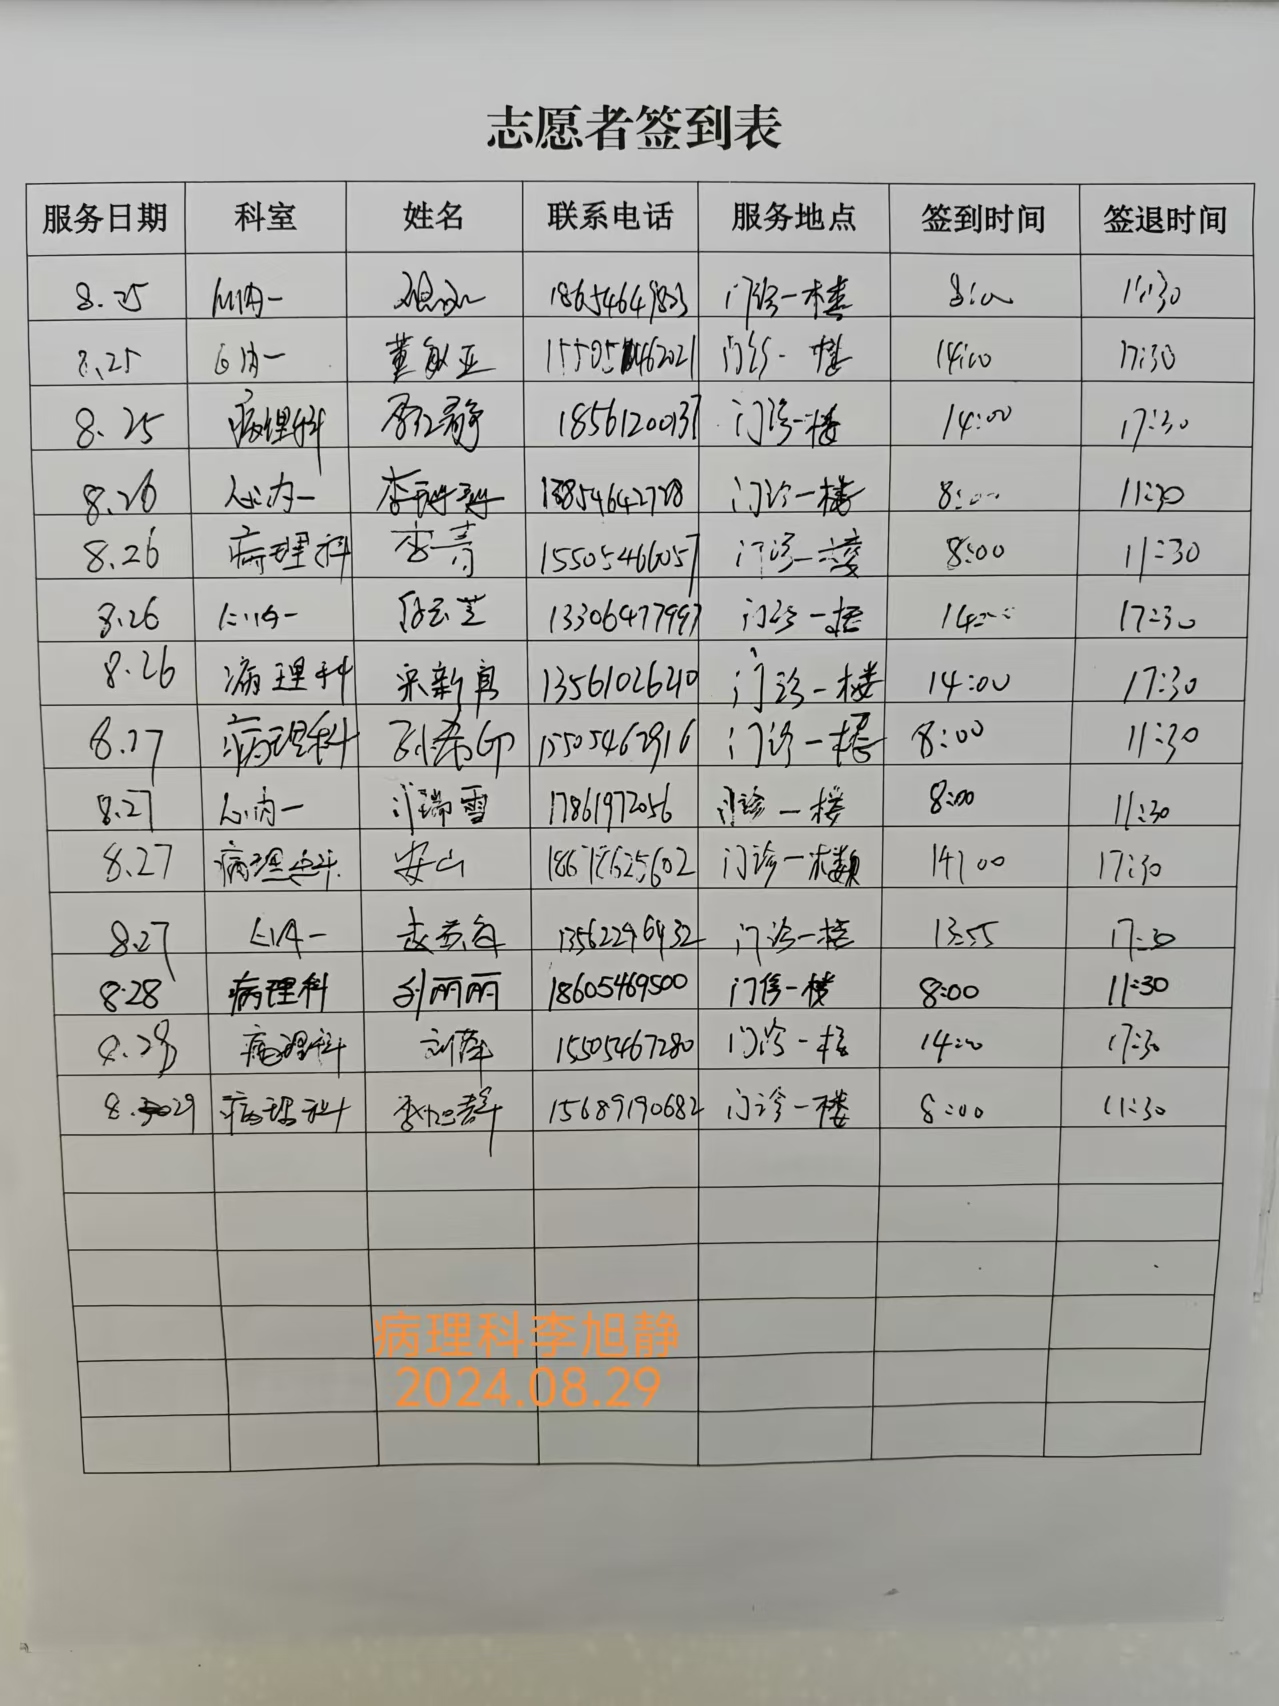 志愿者签到表
服务日期 科室 姓名 联系电话 服务地点 签到时间 签退时间
8.25 心内一 18654649823 门诊一楼 8:00 11:30
8.25 心内一 董敏亚 门诊一楼 14:00 17:30
8.25 病理科 18561200137 门诊一楼 14:00 17:30
8.26 心内一 13854642728 门诊一楼 8:00 11:30
8.26 病理科 李青 15505466057 门诊一楼 8:00 11:30
8.26 心内一 13306477997 门诊一楼 14:00 17:30
8.26 病理科 宋新自 13561026210 门诊一楼 14:00 17:30
8.27 病理科 15505462916 门诊一楼 8:00 11:30
8.27 心内一 瑞雪 17861972056 门诊一楼 8:00 11:30
8.27 病理科 安山 18678625602 门诊一楼 14:00 17:30
8.27 心内一 13562296432 门诊一楼 13:55 17:30
8.28 病理科 刘丽丽 18605469500 门诊一楼 8:00 11:30
8.28 病理科 刘萍 15505467280 门诊一楼 14:00 17:30
8.29 病理科 李旭静 15689190682 门诊一楼 8:00 11:30
病理科李旭静
2024.08.29